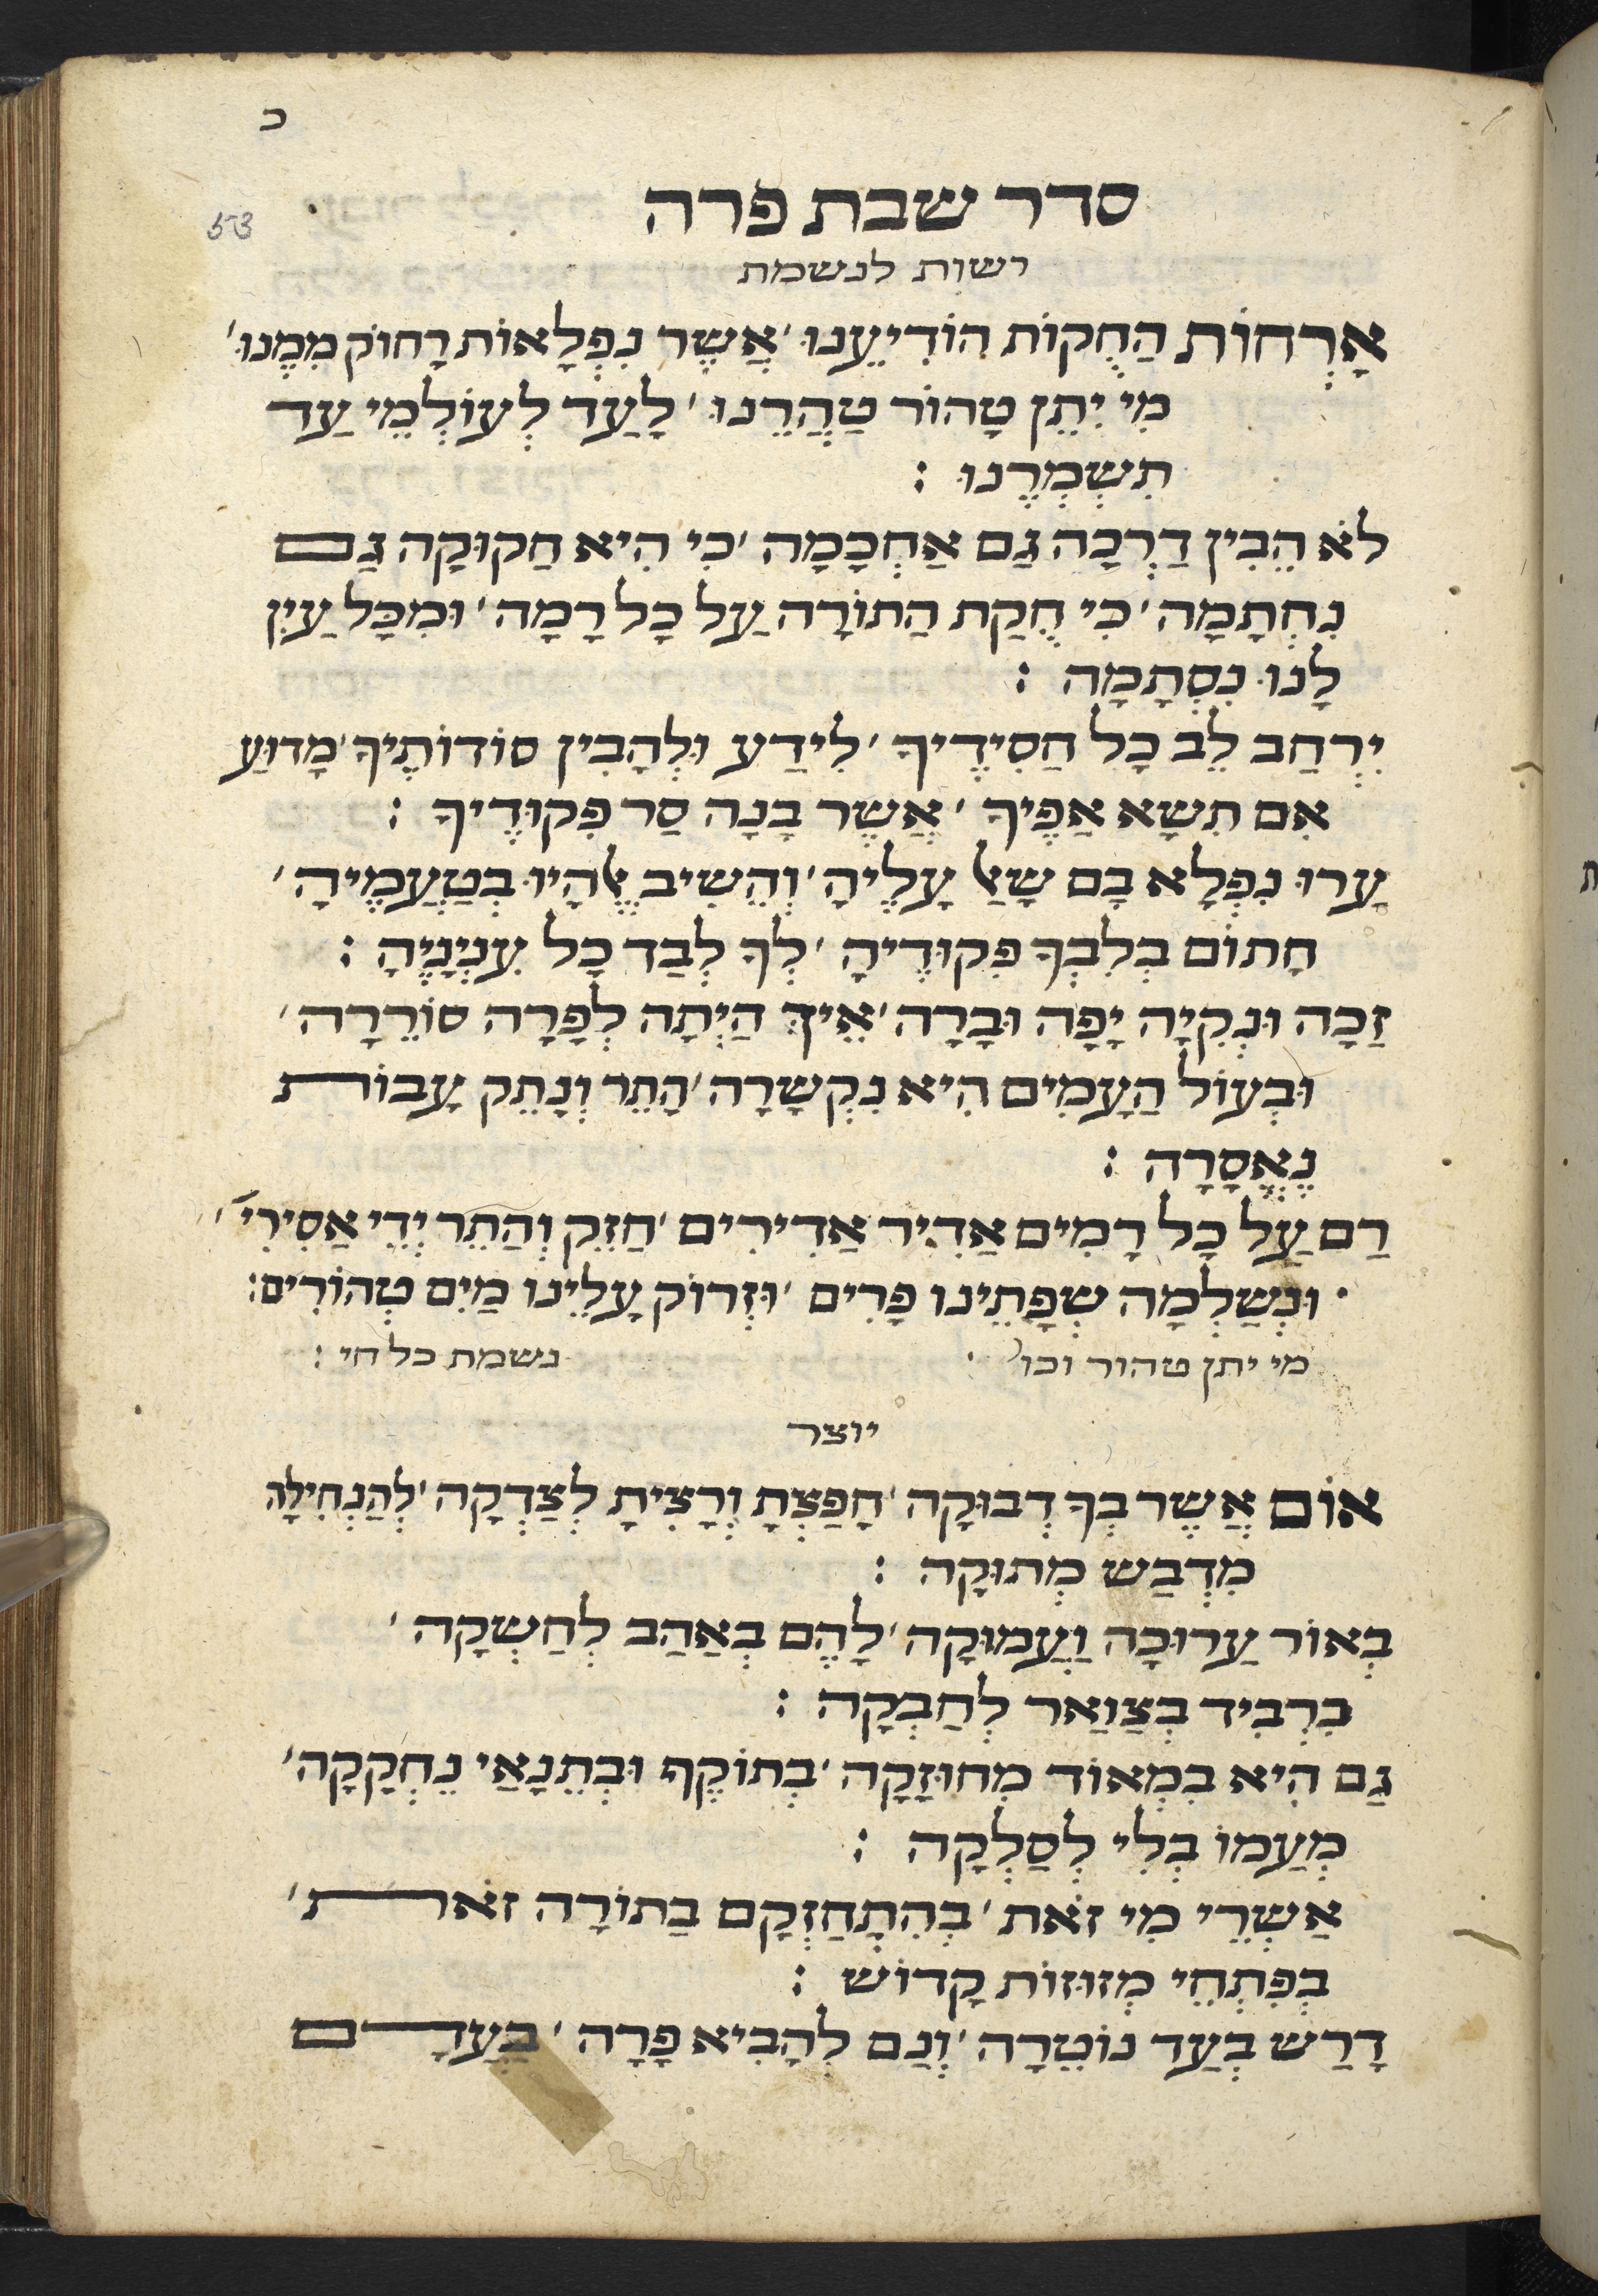 כ
סדר שבת פרה
53
רשות לנשמת
אָרְחוֹת הַחֻקוֹת הוֹדִיעֵנוּ ׳ אֲשֶׁר נִפְלָאוֹת רָחוֹק מִמֶנוּ ׳
מִי יִתֵן טָהוֹר טַהֲרֵנוּ ׳ לָעַד לְעוֹלְמֵי עַד
תִשְׁמְרֶנוּ :
לֹא הֵבִין דַרְכָה גַם אַחְכָמָה ׳ כִי הִיא חַקוּקָה גַם
נִחְתָמָה ׳ כִי חֻקַת הַתוֹרָה עַל כָל רָמָה ׳ וּמִכָּל עַיִן
לָנוּ נִסְתָמָה :
יִרְחַב לֵב כָל חַסִידֶיךָ ׳ לִידַע וּלְהָבִין סוֹדוֹתֶיךָ ׳ מָדוּעַ
אִם תִשָא אַפֶיךָ ׳ אֲשֶר בָנָה סַר פִקוּדֶיךָ :
עָרוּ נִפְלָא בָם שָאַל עָלֶיהָ ׳ וְהֵשִיב אֱלֹהָיו בְטַעֲמֶיהָ ׳
חָתוֹם בְלִבְךָ פִקוּדֶיהָ ׳ לְךָ לְבַד כָל עִנְיָנֶיהָ :
זַכָה וּנְקִיָה יָפָה וּבָרָה ׳ אֵיךְ הַיְתָה לְפָרָה סוֹרֵרָה ׳
וּבְעוֹל הַעָמִים הִיא נִקְשָרָה ׳ הָתֵר וְנָתֵק עָבוֹת
נֶאֱסָרָה :
רַם עַל כָל רָמִים אַדִיר אַדִירִים ׳ חַזֵק וְהַתֵר יְדֵי אַסִירִי׳ ׳
וּנְשַלְמָה שְפָתֵינוּ פָרִים ׳ וּזְרוֹק עָלֵינוּ מַיִם טְהוֹרִים :
מי יתן טהור וכו׳ נשמת כל חי :
יוצר
אוֹם אֲשֶר בְךָ דְבוּקָה ׳ חָפַצְתָ וְרָצִיתָ לְצַדְקָה ׳ לְהַנְחִילָה
מִדְבַש מְתוּקָה :
בְאוֹר עַרוּכָה וַעֲמוּקָה ׳ לָהֶם בְאַהַב לְחַשְקָה ׳
כִרְבִיד בְצַוַאר לְחַבְקָה :
גַם הִיא בִמְאוֹד מְחוּזָקָה ׳ בְתוֹקֶף וּבְתֵנָאַי נֵחְקָקָה ׳
מְעַמוֹ בְלִי לְסַלְקָה :
אַשְרֵי מִי זֹאת ׳ בְהִתְחַזְקָם בַתוֹרָה זֹאת ׳
בְפִתְחֵי מְזוּזוֹת קָדוֹש :
דָרַש בְעַד נוֹטֵרָה ׳ וְנַם לְהָבִיא פָרָה ׳ בַעֲדָם